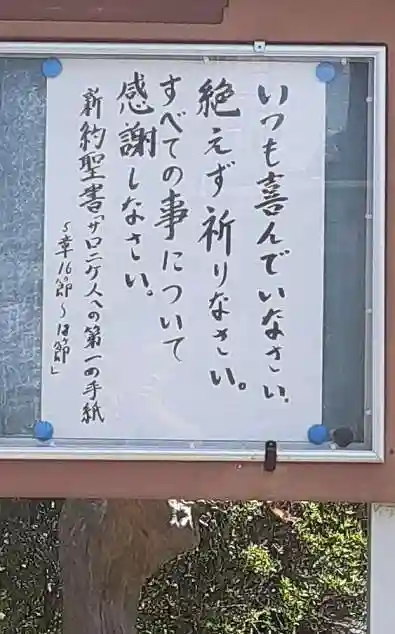 いつも喜んでいなさい。
絶えず祈りなさい。
すべての事について
感謝しなさい。
新約聖書「テサロニケ人への第一の手紙
5章16節〜18節」